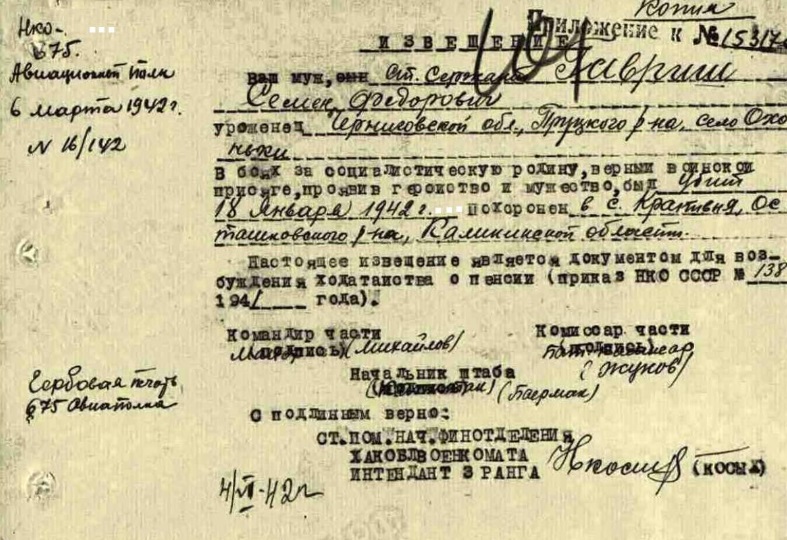 Копия
Приложение к № 153176
ИЗВЕЩЕНИЕ
НКО-
675.
Авиационной полк
6 марта 1942г.
N 16/142
Ваш муж, сын ст. Сержант Гавриш
Семен Федорович
уроженец Черниговской обл., Пруцкого р-на, село Охо
ньки
В боях за социалистическую родину, верный воинской
присяге, проявив геройство и мужество, был убит
18 Января 1942 г. похоронен в с. Крапивня, Ос
ташковского р-на, Калининской области.
Настоящее извещение является документом для воз-
буждения ходатайства о пенсии (приказ НКО СССР № 138
1941 года).
Командир части Комиссар части
(подпись) (Михайлов) (подпись)
(Жуков)
Начальник штаба
Гербовая печать
675 Авиаполка
С подлинным верно:
СТ.ПОМ.НАЧ.ФИНОТДЕЛЕНИЯ
ХАКОБЛВОЕНКОМАТА
ИНТЕНДАНТ 3 РАНГА (КОСЫХ)
4/VI-42г